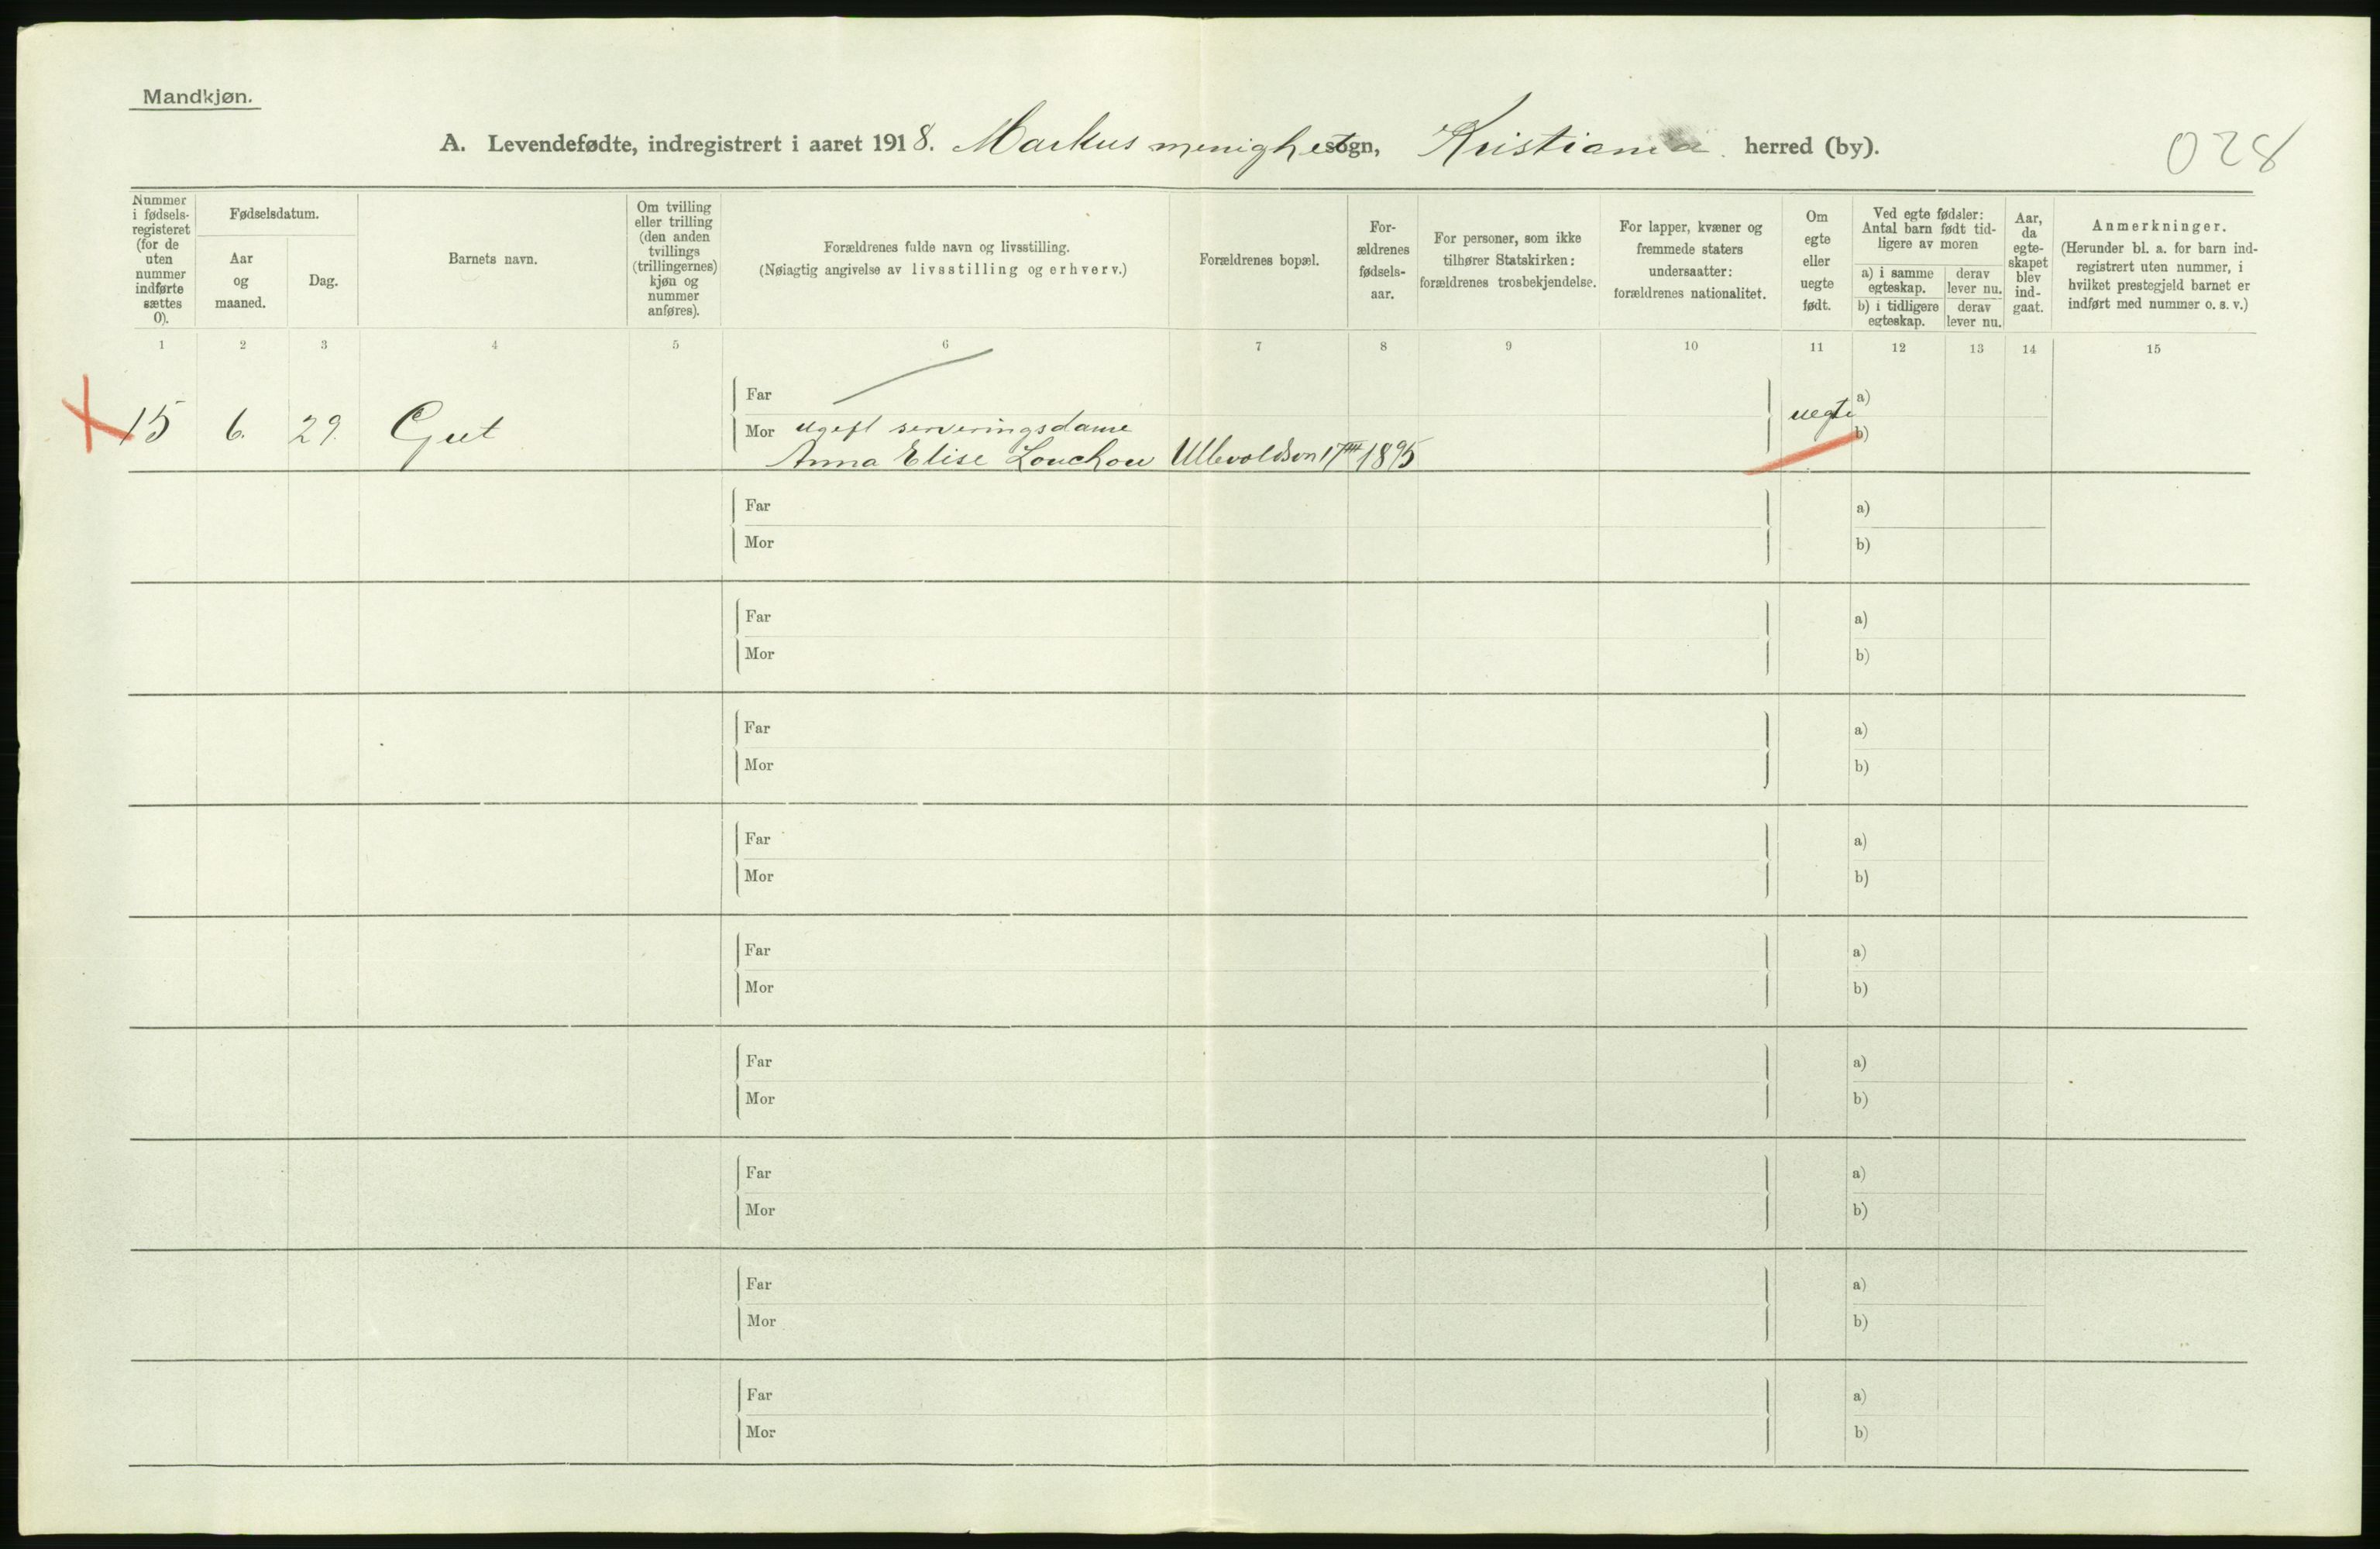 Mandkjøn.
A. Levendefødte, indregistrert i aaret 1918. Markus menighet sogn, Kristiania herred (by).
028
Nummer i fødsels-registeret (for de uten nummer indførte sættes 0).
Fødselsdatum.
Aar og maaned.
Dag.
Barnets navn.
Om tvilling eller trilling (den anden tvillings (trillingernes) kjøn og nummer anføres).
Forældrenes fulde navn og livsstilling.
(Nøiagtig angivelse av livsstilling og erhverv.)
Forældrenes bopæl.
For-ældrenes fødsels-aar.
For personer, som ikke tilhører Statskirken: forældrenes trosbekjendelse.
For lapper, kvæner og fremmede staters undersaatter: forældrenes nationalitet.
Om egte eller uegte født.
Ved egte fødsler: Antal barn født tid-ligere av moren
a) i samme egteskap.
derav lever nu.
b) i tidligere egteskap.
derav lever nu.
Aar, da egte-skapet blev ind-gaat.
Anmerkninger.
(Herunder bl. a. for barn ind-registrert uten nummer, i hvilket prestegjeld barnet er indført med nummer o. s. v.)
1 2 3 4 5 6 7 8 9 10 11 12 13 14 15
Far a)
15 6. 29. Gut uegte
Mor ugift serveringsdame b)
Anna Elise 1895
Far a)
Mor b)
Far a)
Mor b)
Far a)
Mor b)
Far a)
Mor b)
Far a)
Mor b)
Far a)
Mor b)
Far a)
Mor b)
Far a)
Mor b)
Far a)
Mor b)